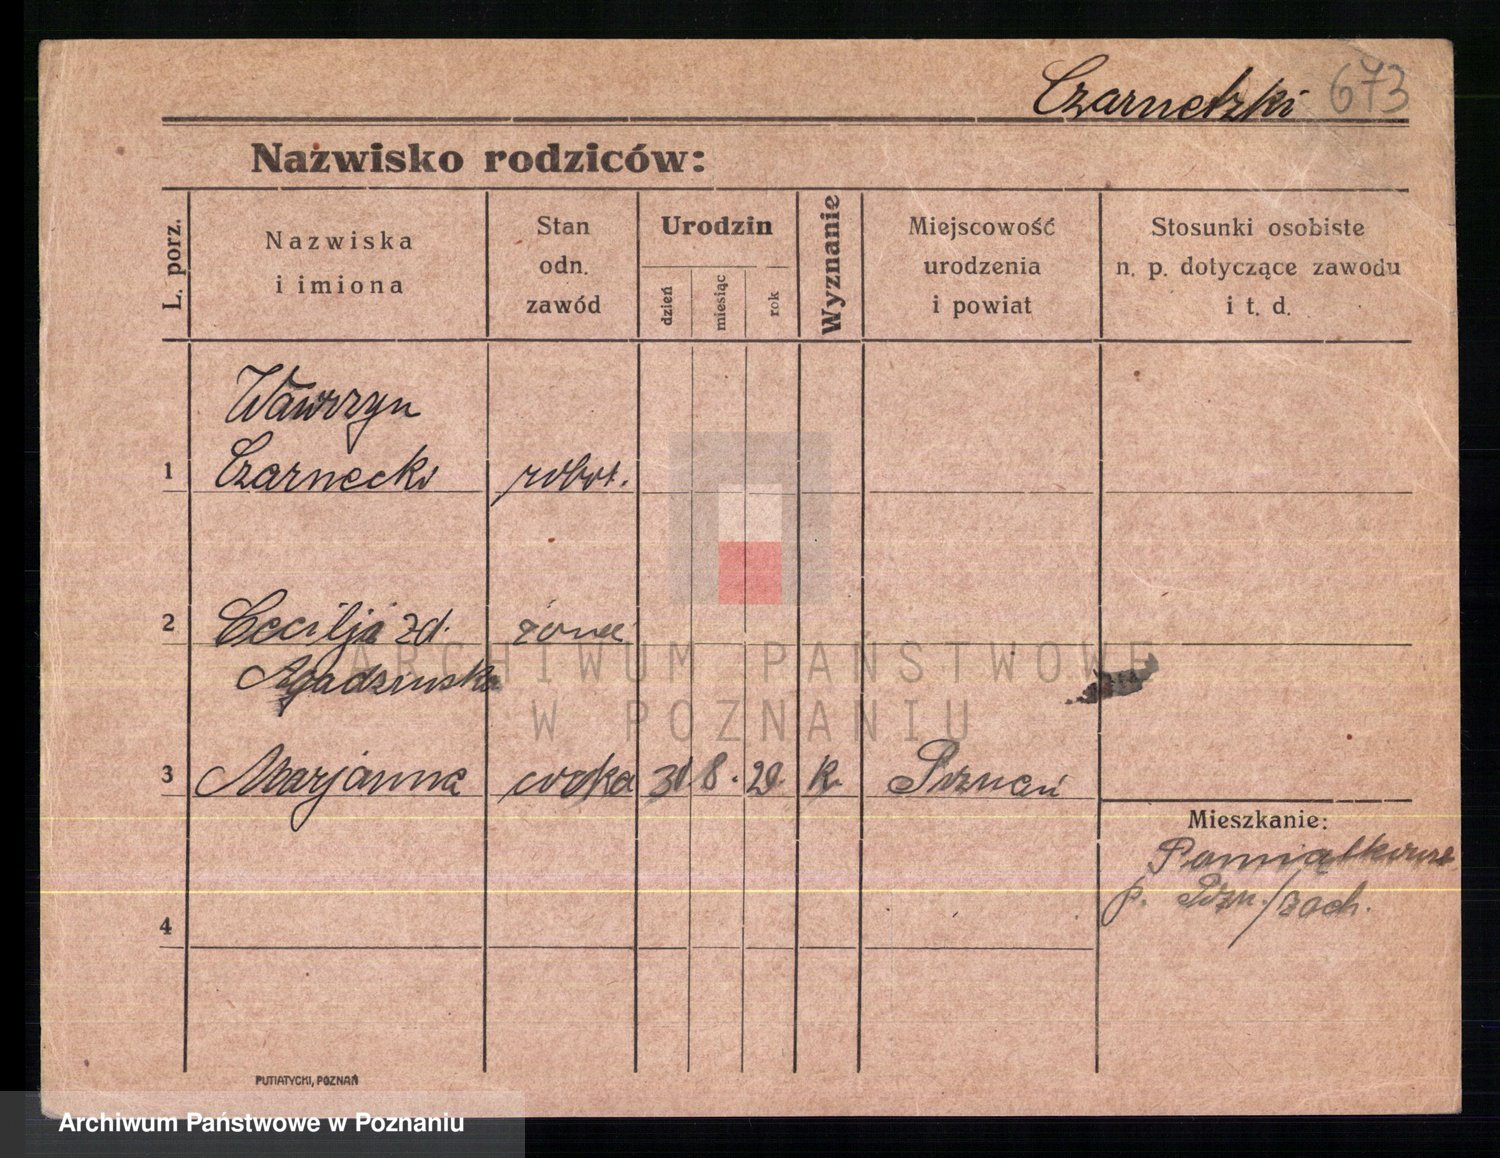 Czarnetzki 673
Nazwisko rodziców:
L. porz.
Nazwiska
i imiona
Stan
odn.
zawód
Urodzin
dzień
miesiąc
rok
Wyznanie
Miejscowość
urodzenia
i powiat
Stosunki osobiste
n. p. dotyczące zawodu
i t. d.
Wawrzyn
1 Czarnecki robot.
2 Cecilja zd. żona
ARCHIWUM PAŃSTWOWE
W POZNANIU
3 Marjanna córka 8. k. Poznań
Mieszkanie:
p. Pozn./zach.
4
PUTIATYCKI, POZNAŃ
Archiwum Państwowe w Poznaniu